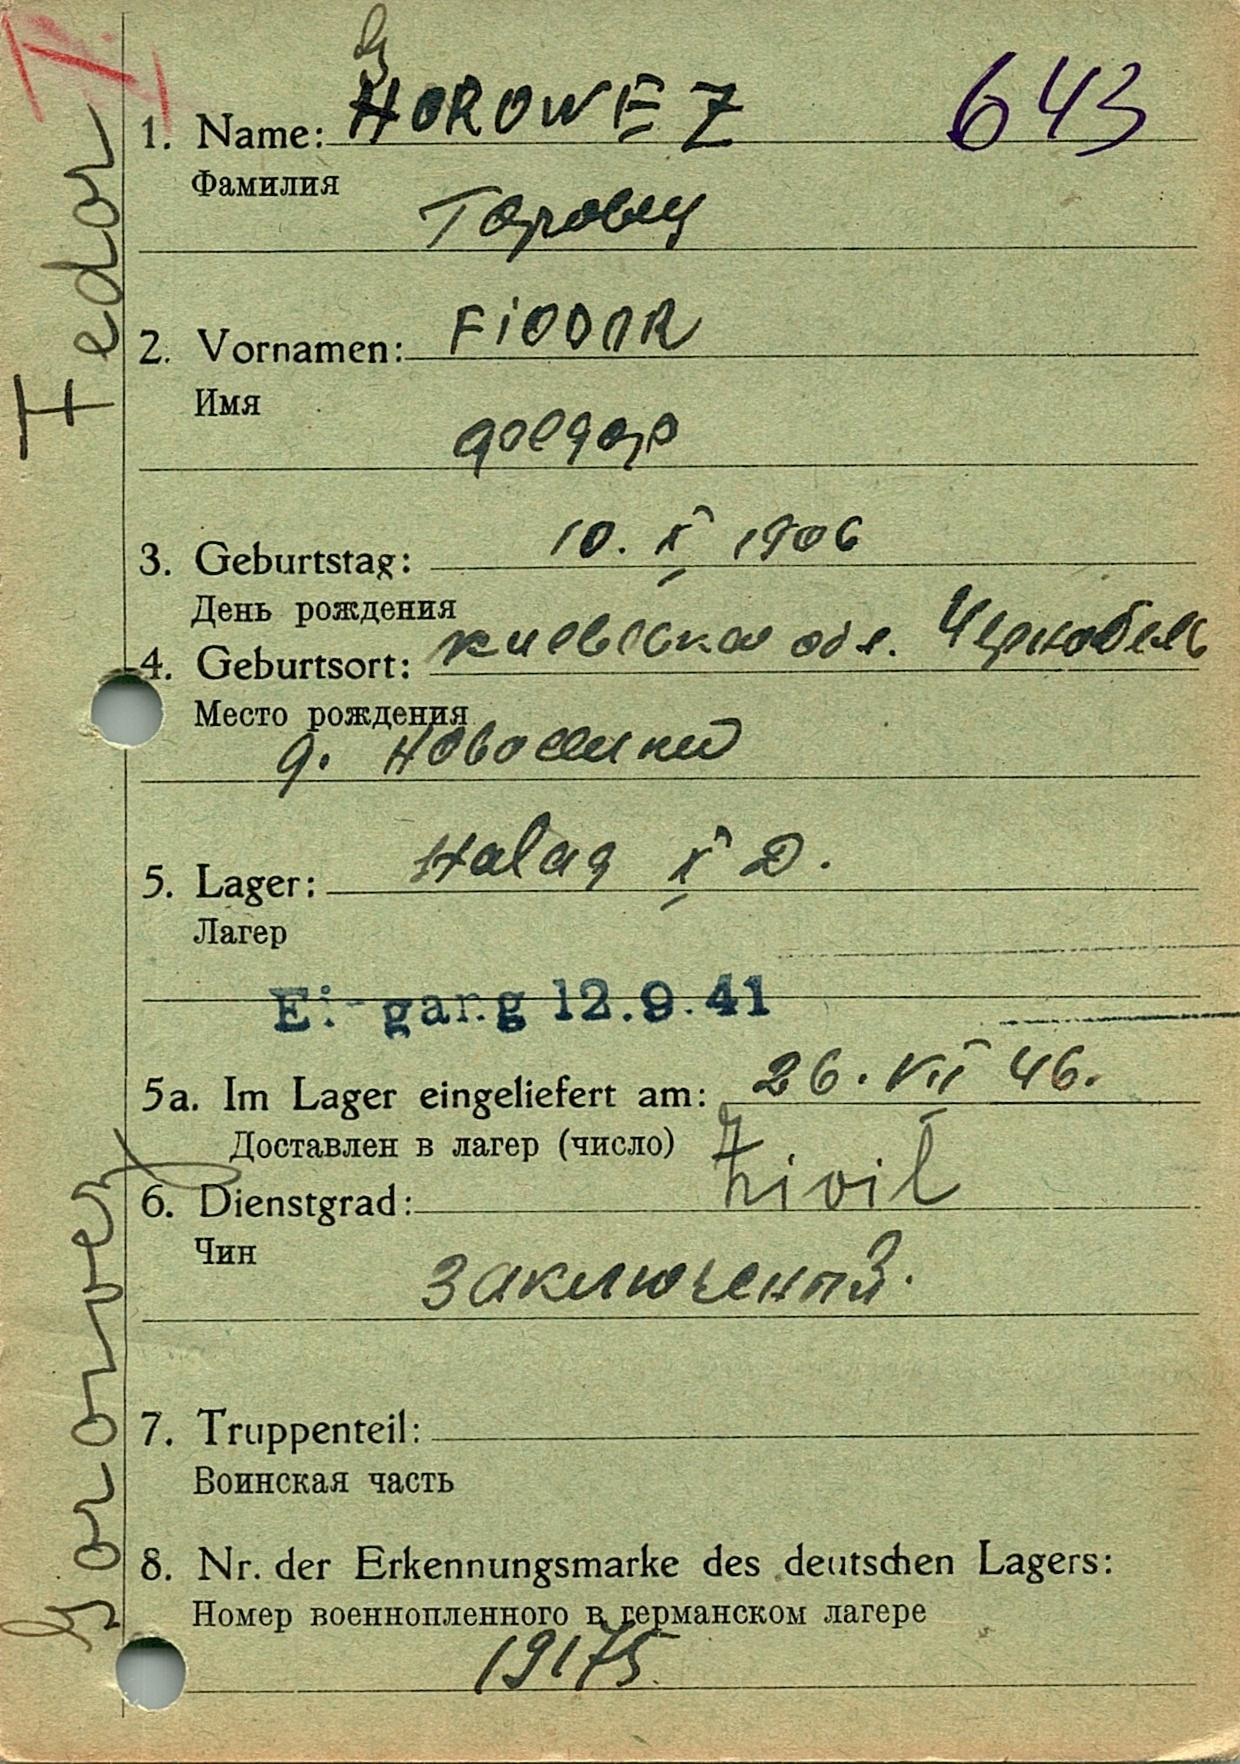 G
1. Name: HOROWEZ 643
Фамилия
Горовец
2. Vornamen: FiODOR
Имя
Фёедор
3. Geburtstag: 10. X 1906
День рождения
4. Geburtsort: Киевская обл. Чернобель
Место рождения
д. Новошики
5. Lager: Stalag X D.
Лагер
Eingang 12.9.41
5a. Im Lager eingeliefert am: 26. VII 46.
Доставлен в лагер (число)
6. Dienstgrad: Zivil
Чин
Заключеный.
7. Truppenteil:
Воинская часть
8. Nr. der Erkennungsmarke des deutschen Lagers:
Номер военнопленного в германском лагере
19175
Gorovez Fedor